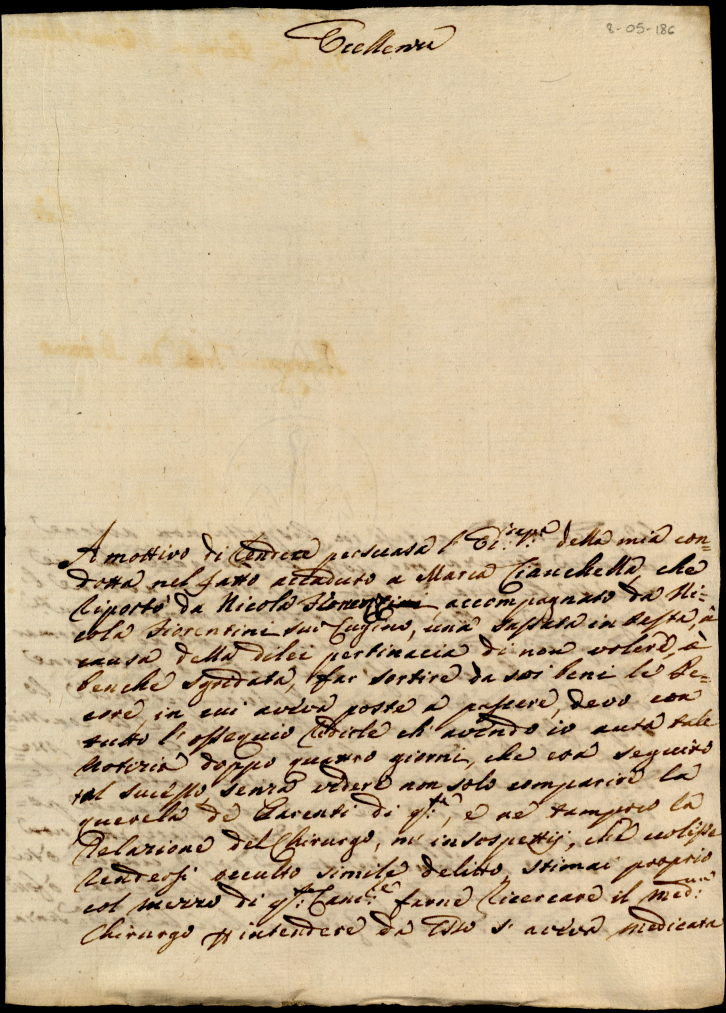 8-05-186
Eccellenza
A mottivo di rendere persuasa l'Ec:za V:ra della mia con=
dotta nel fatto accaduto a Maria Cianchella, che
riportò da Nicola accompagnato da Ni=
cola Fiorentini suo Cugino, una sassata in testa, à
causa della dilei pertinacia di non volere, è
benche sgridata, far sortire da suoi beni le Pe=
core, in cui aveva poste a pascere, devo con
tutto l'ossequio ridirle ch'avendo io auta tale
Notizia doppo quattro giorni, che era seguito
tal successo senza vedere non solo comparire la
querela de Parenti di q:ta, e ne tampoco la
Relazione del Chirurgo, m'insospettij, che volesse
rendersi occulto simile delitto, stimai proprio
col mezzo di q:to Canc:re farne ricercare il med:mo
Chirurgo intendere da Esso s'aveva medicata